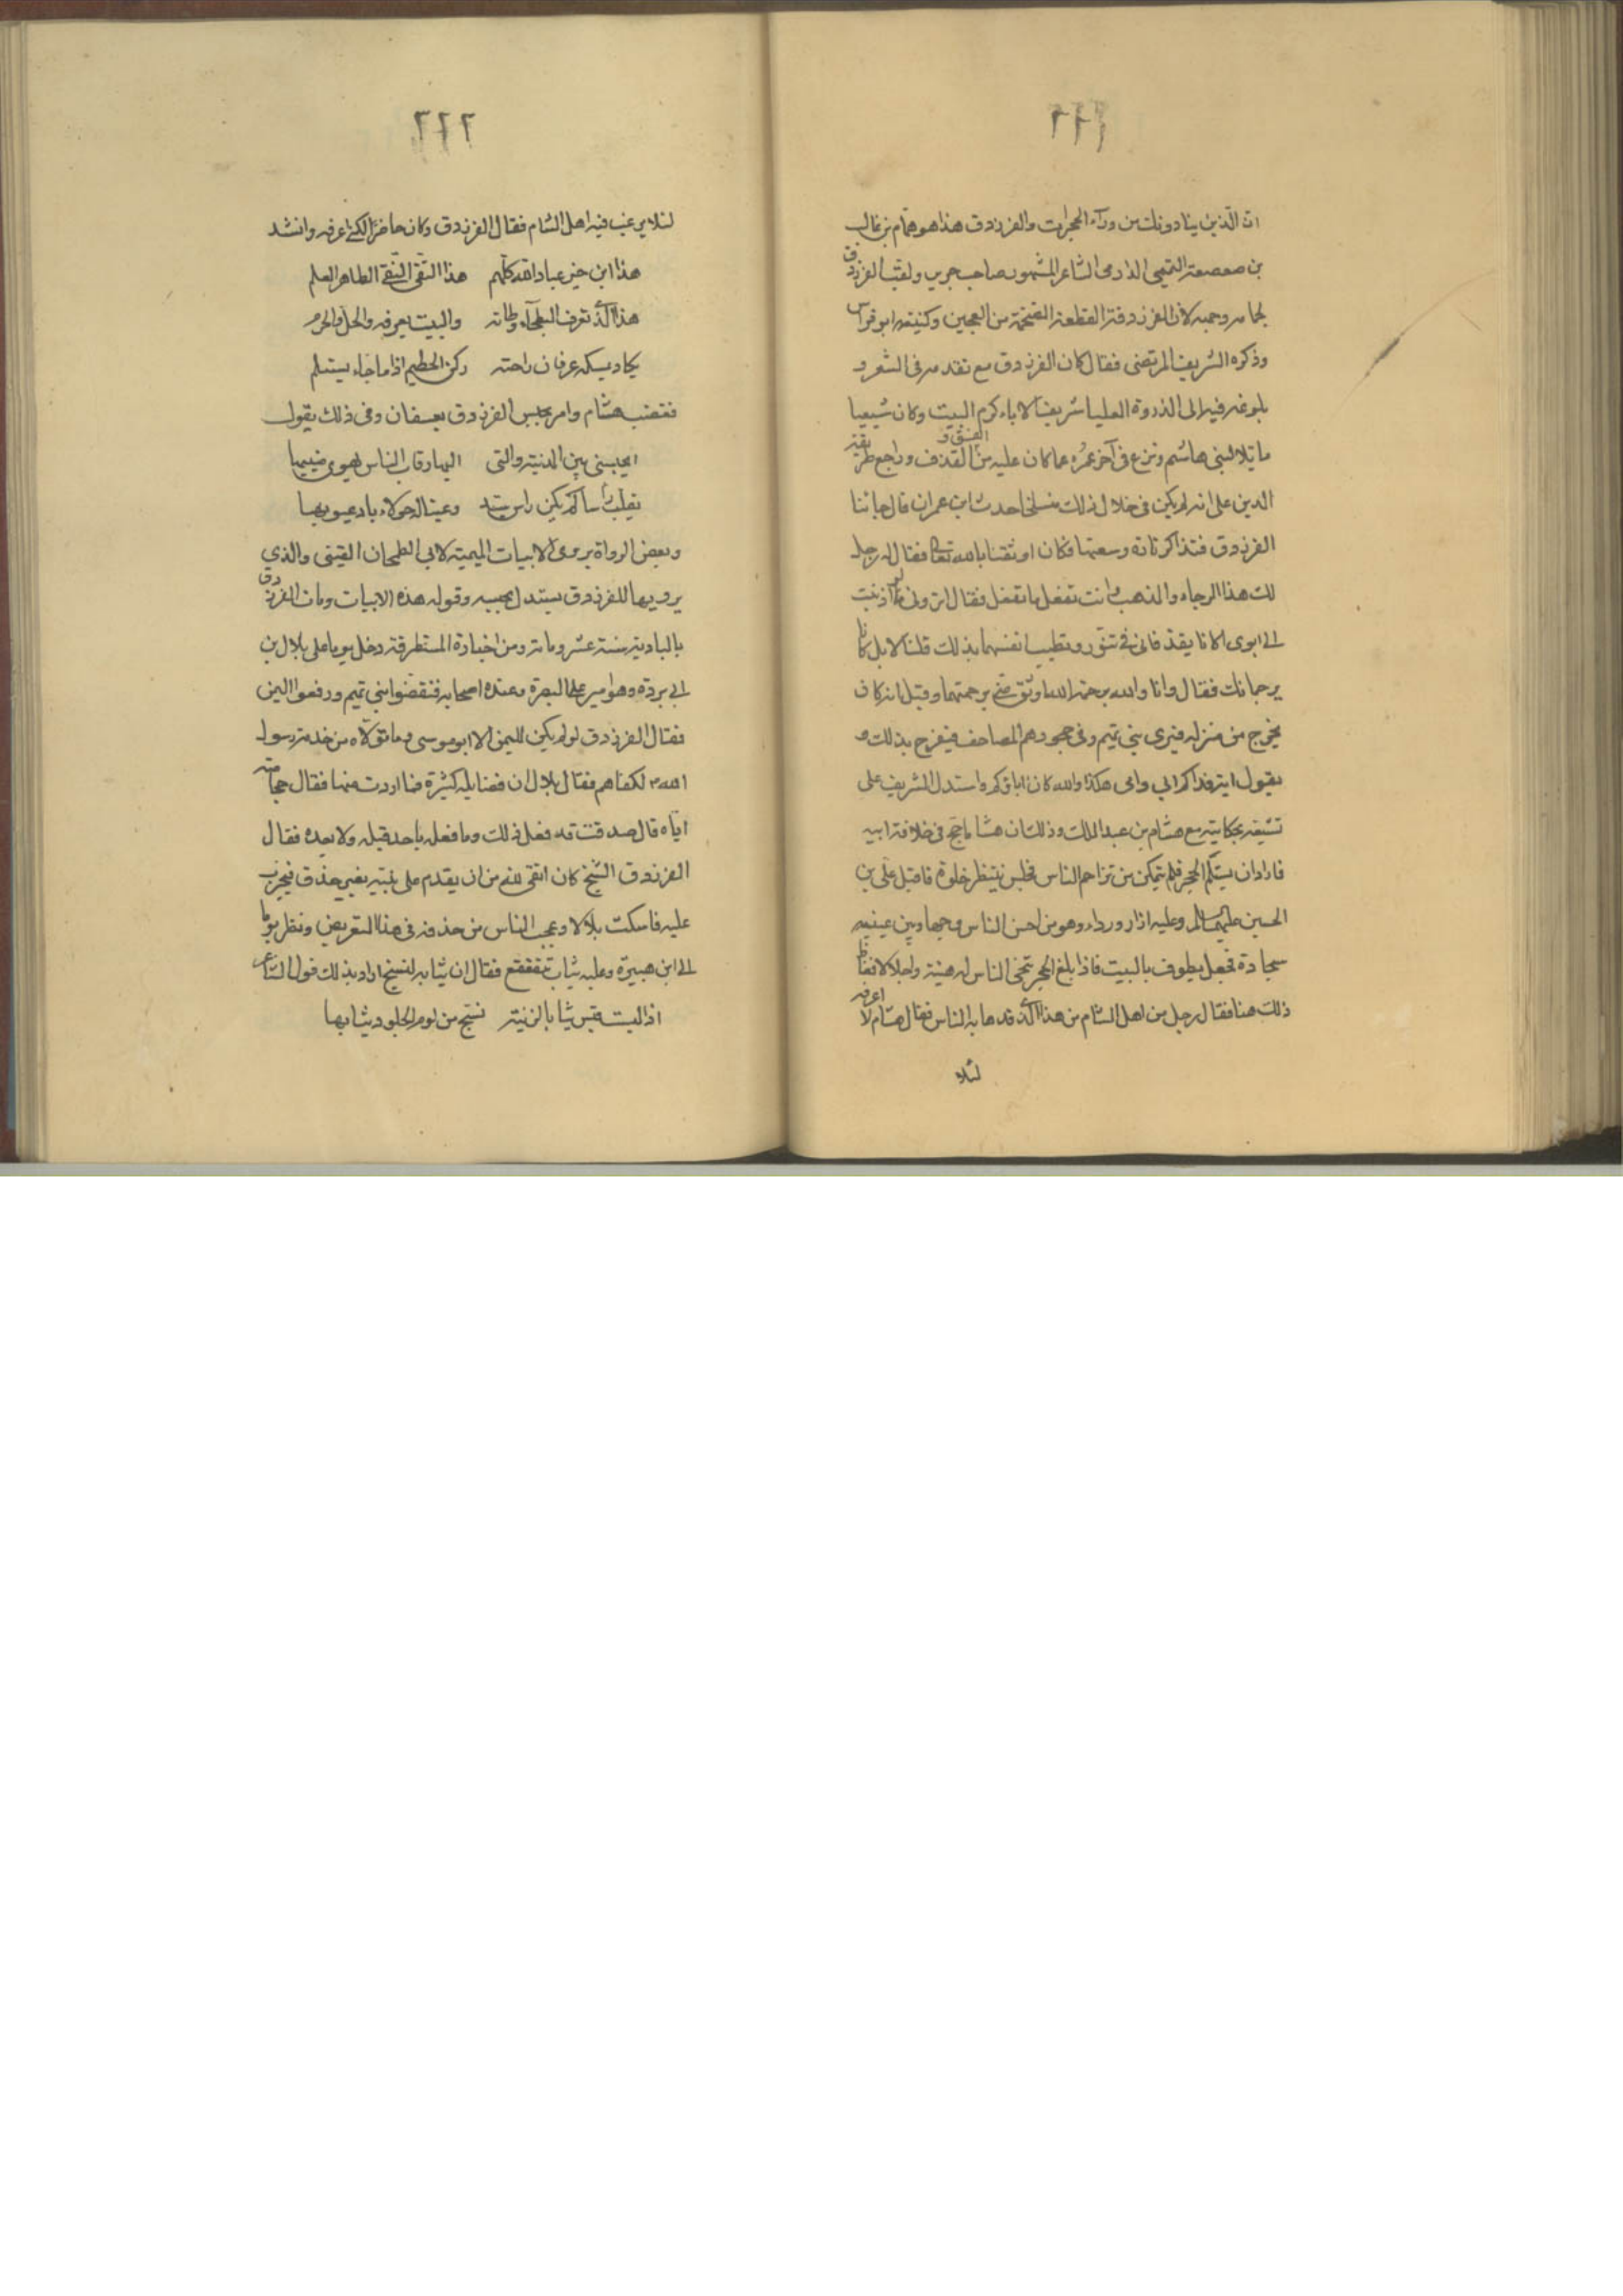 ٢٢١
ان الذين ينادونك من ورآء الحجرات والفرزدق هذا هو همام بن غالب
بن صعصعة التميمى الدارمى الشاعر المشهور صاحب جرير ولقب الفرزدق
لجهامة وجهه لان الفرزدقة القطعة الضخمة من العجين وكنيته ابو فراس
وذكره الشريف المرتضى فقال كان الفرزدق مع تقدمه فى الشعر و
بلوغه فيه الى الذروة العليا شريف الاباء كريم البيت وكان شيعيا
مائلا لبنى هاشم ونزع فى آخر عمره عما كان عليه من الفسق و القذف وراجع طريقة
الدين على انه لم يكن فى خلال ذلك منسلخا حدث ابن عمران قال جائنا
الفرزدق فتذاكرنا وسعتها فكان اوثقنا بالله تعالى فقال له رجل
لك هذا الرجاء والمذهب وانت تفعل ما تفعل فقال اترونى لو اذنبت
الى ابوى اكانا يقذفانى فى تنور وتطيب انفسهما بذلك قلنا لا بل كانا
يرحمانك فقال وانا والله برحمة الله اوثق منى برحمتهما وقيل انه كان
يخرج من منزله فيرى بنى تميم وفى حجورهم المصاحف فيفرح بذلك و
يقول ايه فداكم ابي وامى هكذا والله كان اباؤكم واستدل الشريف على
تشيعه بحكايته مع هشام بن عبد الملك وذلك ان هشاما حج فى خلافة ابيه
فاراد ان يستلم الحجر فلم يتمكن من تزاحم الناس فجلس ينتظر خلوة فاقبل على بن
الحسين عليهما السلام وعليه ازار ورداء وهو من احسن الناس وجها وبين عينيه
سجادة فجعل يطوف بالبيت فاذا بلغ الحجر تنحى الناس له هيبة واجلالا فغاظ
ذلك هشاما فقال رجل من اهل الشام من هذا الذى قد هابه الناس فقال هشام لا اعرفه
لئلا
٢٢٢
لئلا يرغب فيه اهل الشام فقال الفرزدق وكان حاضرا لكنى اعرفه وانشد
هذا ابن خير عباد الله كلهم هذا التقى النقى الطاهر العلم
هذا الذى تعرف البطحآء وطاته والبيت يعرفه والحل والحرم
يكاد يمسكه عرفان راحته ركن الحطيم اذا ما جاء يستلم
فغضب هشام وامر بحبس الفرزدق بعسفان وفى ذلك يقول
ايحبسنى بين المدينة والتى اليها رقاب الناس يهوى منيبها
يقلب راسا لم يكن راس سيد وعينا له حولاء باد عيوبها
وبعض الرواة يروى الابيات الميمية لابى الطمحان القينى والذي
يرويها للفرزدق يستدل بحبسه وقوله هذه الابيات ومات الفرزدق
بالبادية سنة عشر ومائة ومن اخباره المستطرفة دخل يوما على بلال بن
ابى بردة وهو امير على البصرة وعنده اصحابه فنقضوا بنى تميم ورفعوا اليمن
فقال الفرزدق لو لم يكن لليمن الا ابو موسى وما تولاه من خدمة رسول
الله لكفاهم فقال بلال ان فضايله كثيرة فما اردت منها فقال حجامته
اياه قال صدقت قد فعل ذلك وما فعله باحد قبله ولا بعده فقال
الفرزدق الشيخ كان اتقى لله من ان يقدم على نبيه بغير حذق فيجرب
عليه فاسكت بلالا وعجب الناس من حذقه فى هذا التعريض ونظر يوما
الى ابن هبيرة وعليه ثياب تتقعقع فقال ان ثيابه لتسبح اراد بذلك قول الشاعر
اذا لبست قيس ثيابا لزينة تسبح من لوم الجلود ثيابها